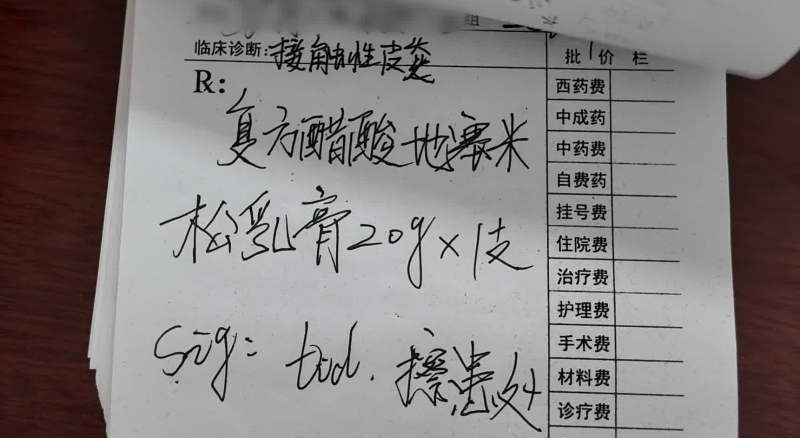 临床诊断:接触性皮炎
批价栏
Rx:
西药费
复方醋酸地塞米
中成药
中药费
自费药
松乳膏20g×1支
挂号费
住院费
治疗费
护理费
Sig: bid. 擦患处
手术费
材料费
诊疗费